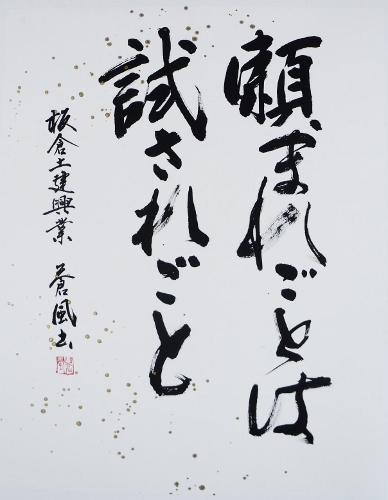 頼まれごとは
試されごと
板倉土建興業 蒼風書